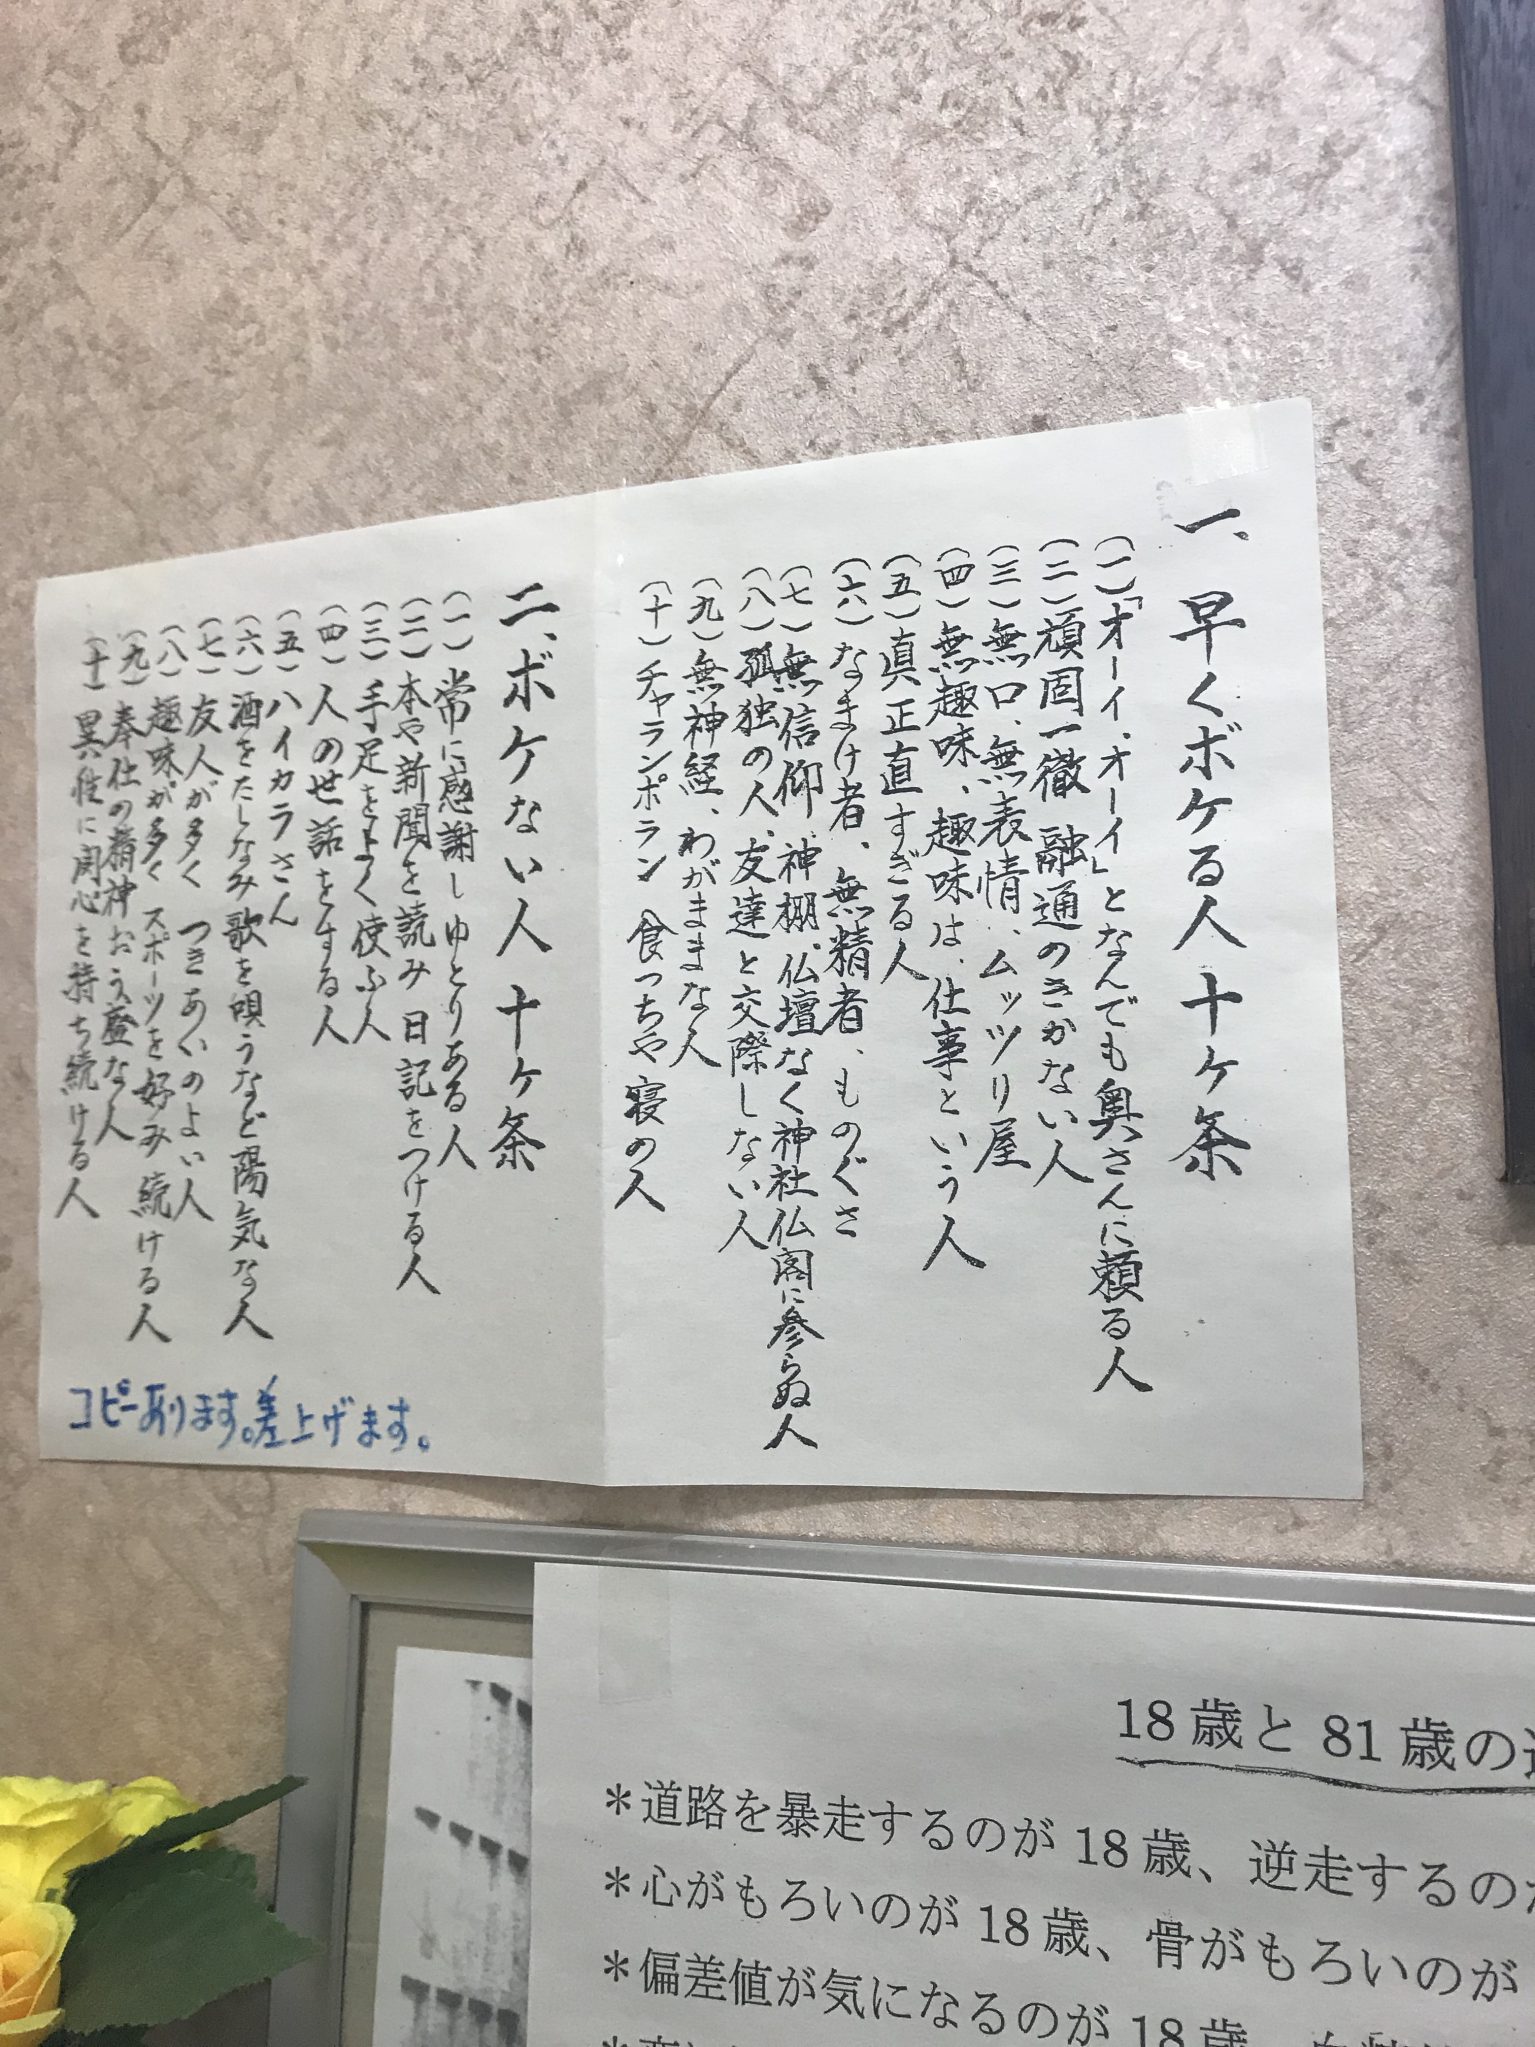 一、早くボケる人 十ヶ条
(一)「オーイ、オーイ」となんでも奥さんに頼る人
(二)頑固一徹 融通のきかない人
(三)無口、無表情、ムッツリ屋
(四)無趣味、趣味は、仕事という人
(五)真正直すぎる人
(六)なまけ者、無精者、ものぐさ
(七)無信仰 神棚、仏壇なく神社仏閣に参らぬ人
(八)孤独の人、友達と交際しない人
(九)無神経、わがままな人
(十)チャランポラン 食っちゃ寝の人
二、ボケない人 十ヶ条
(一)常に感謝しゆとりある人
(二)本や新聞を読み 日記をつける人
(三)手足をよく使ふ人
(四)人の世話をする人
(五)ハイカラさん
(六)酒をたしなみ歌を唄うなど陽気な人
(七)友人が多く つきあいのよい人
(八)趣味が多く スポーツを好み 続ける人
(九)奉仕の精神おう盛な人
(十)異性に関心を持ち続ける人
コピーあります。差上げます。
18歳と81歳の
*道路を暴走するのが18歳、逆走するのが
*心がもろいのが18歳、骨がもろいのが
*偏差値が気になるのが18歳、血糖